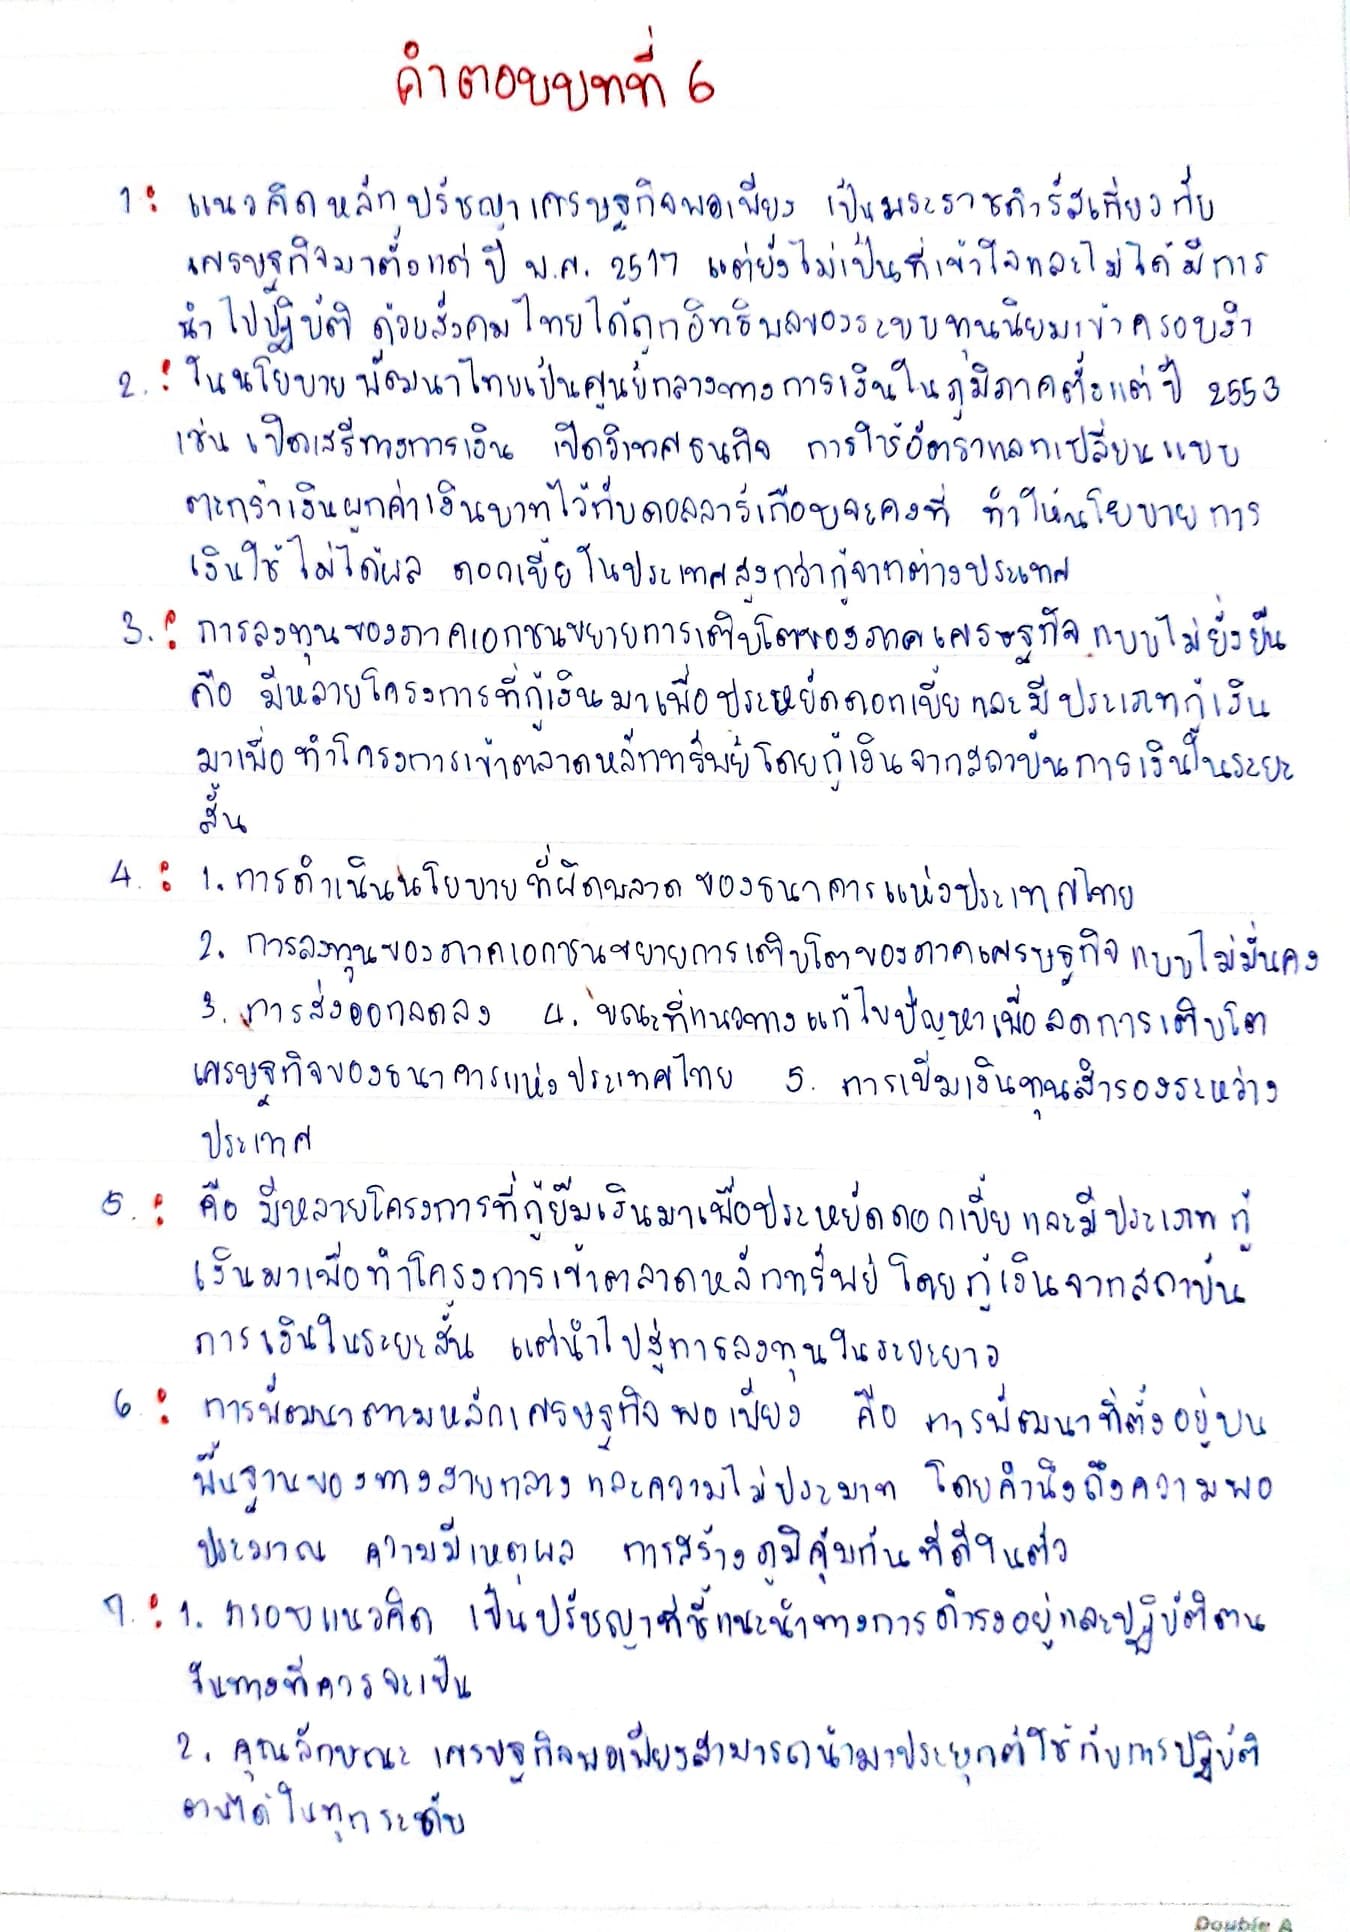 คำตอบบทที่ 6
1: แนวคิดหลักปรัชญาเศรษฐกิจพอเพียง เป็นพระราชดำรัสเกี่ยวกับ
เศรษฐกิจมาตั้งแต่ ปี พ.ศ. 2517 แต่ยังไม่เป็นที่เข้าใจและไม่ได้มีการ
นำไปปฏิบัติ ด้วยสังคมไทยได้ถูกอิทธิพลของระบบทุนนิยมเข้าครอบงำ
2. : ในนโยบายพัฒนาไทยเป็นศูนย์กลางทางการเงินในภูมิภาคตั้งแต่ ปี 2553
เช่น เปิดเสรีทางการเงิน เปิดวิเทศธนกิจ การใช้อัตราแลกเปลี่ยนแบบ
ตะกร้าเงินผูกค่าเงินบาทไว้กับดอลลาร์เกือบจะคงที่ ทำให้นโยบายการ
เงินใช้ไม่ได้ผล ดอกเบี้ยในประเทศสูงกว่ากู้จากต่างประเทศ
3. : การลงทุนของภาคเอกชนขยายการเติบโตของภาคเศรษฐกิจแบบไม่ยั่งยืน
คือ มีหลายโครงการที่กู้เงินมาเพื่อประหยัดดอกเบี้ยและมีประเภทกู้เงิน
มาเพื่อทำโครงการเข้าตลาดหลักทรัพย์โดยกู้เงินจากสถาบันการเงินในระยะ
สั้น
4. : 1. การดำเนินนโยบายที่ผิดพลาดของธนาคารแห่งประเทศไทย
2. การลงทุนของภาคเอกชนขยายการเติบโตของภาคเศรษฐกิจแบบไม่มั่นคง
3. การส่งออกลดลง 4. ขณะที่แนวทางแก้ไขปัญหาเพื่อลดการเติบโต
เศรษฐกิจของธนาคารแห่งประเทศไทย 5. การเพิ่มเงินทุนสำรองระหว่าง
ประเทศ
5. : คือ มีหลายโครงการที่กู้ยืมเงินมาเพื่อประหยัดดอกเบี้ยและมีประเภทกู้
เงินมาเพื่อทำโครงการเข้าตลาดหลักทรัพย์ โดยกู้เงินจากสถาบัน
การเงินในระยะสั้น แต่นำไปสู่การลงทุนในระยะยาว
6 : การพัฒนาตามหลักเศรษฐกิจพอเพียง คือ การพัฒนาที่ตั้งอยู่บน
พื้นฐานของทางสายกลางและความไม่ประมาท โดยคำนึงถึงความพอ
ประมาณ ความมีเหตุผล การสร้างภูมิคุ้มกันที่ดีในตัว
7. : 1. กรอบแนวคิด เป็นปรัชญาที่ชี้แนะนำทางการดำรงอยู่และปฏิบัติตน
ในทางที่ควรจะเป็น
2. คุณลักษณะ เศรษฐกิจพอเพียงสามารถนำมาประยุกต์ใช้กับการปฏิบัติ
ตนได้ในทุกระดับ
Double A